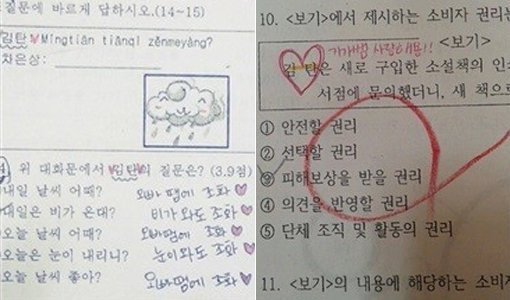 질문에 바르게 답하시오.(14~15)
김탄♥Míngtiān tiānqì zěnmeyàng?
차은상:
위 대화문에서 김탄의 질문은? (3.9점)
내일 날씨 어때? 오빠 땜에 조화♥
내일은 비가 온대? 비가 와도 조화♥
오늘 날씨 어때? 오빠땜에 조화♥
오늘은 눈이 내리니? 눈이와도 조화♥
오늘 날씨 좋아? 오빠땜에 조화♥
10. <보기>에서 제시하는 소비자 권리는
사랑해용!! <보기>
김 탄은 새로 구입한 소설책의 인
서점에 문의했더니, 새 책으
① 안전할 권리
② 선택할 권리
③ 피해보상을 받을 권리
④ 의견을 반영할 권리
⑤ 단체 조직 및 활동의 권리
11. <보기>의 내용에 해당하는 소비자